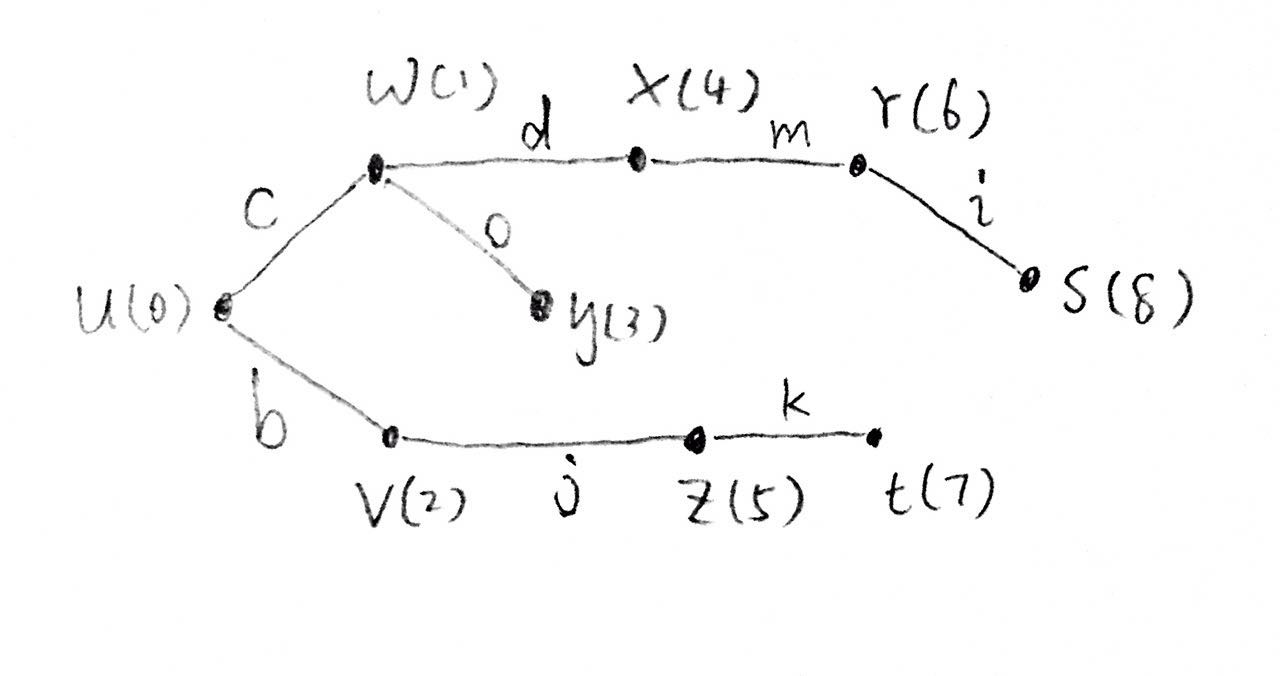 W(1)
d
X(4)
m
r(6)
c
o
i
u(0)
y(3)
S(8)
b
k
V(2)
j
Z(5)
t(7)